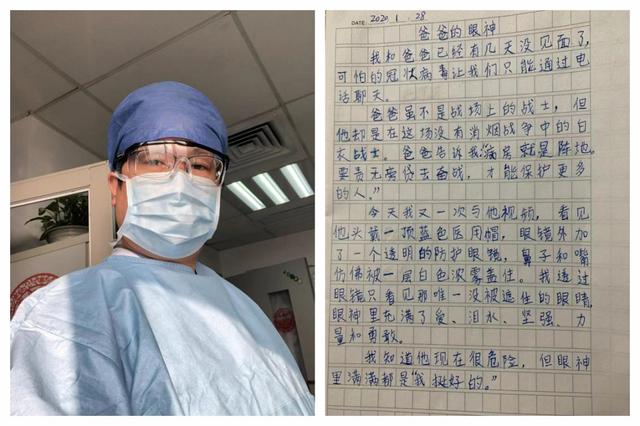 DATE: 2020.1.28
爸爸的眼神
我和爸爸已经有几天没见面了,
可怕的冠状病毒让我们只能通过电
话聊天。
爸爸虽不是战场上的战士,但
他却是在这场没有消烟战争中的白
天战士。爸爸告诉我:“病房就是阵地。
要责无旁贷去奋战,才能保护更多
的人。”
今天我又一次与他视频,看见
他头戴一顶蓝色医用帽,眼镜外加
了一个透明的防护眼镜,鼻子和嘴
仿佛被一层白色浓雾盖住。我透过
眼镜只看见那唯一没被遮住的眼睛,
眼神里充满了爱、泪水、坚强、力
量和勇敢。
我知道他现在很危险,但眼神
里满满都是“我挺好的。”